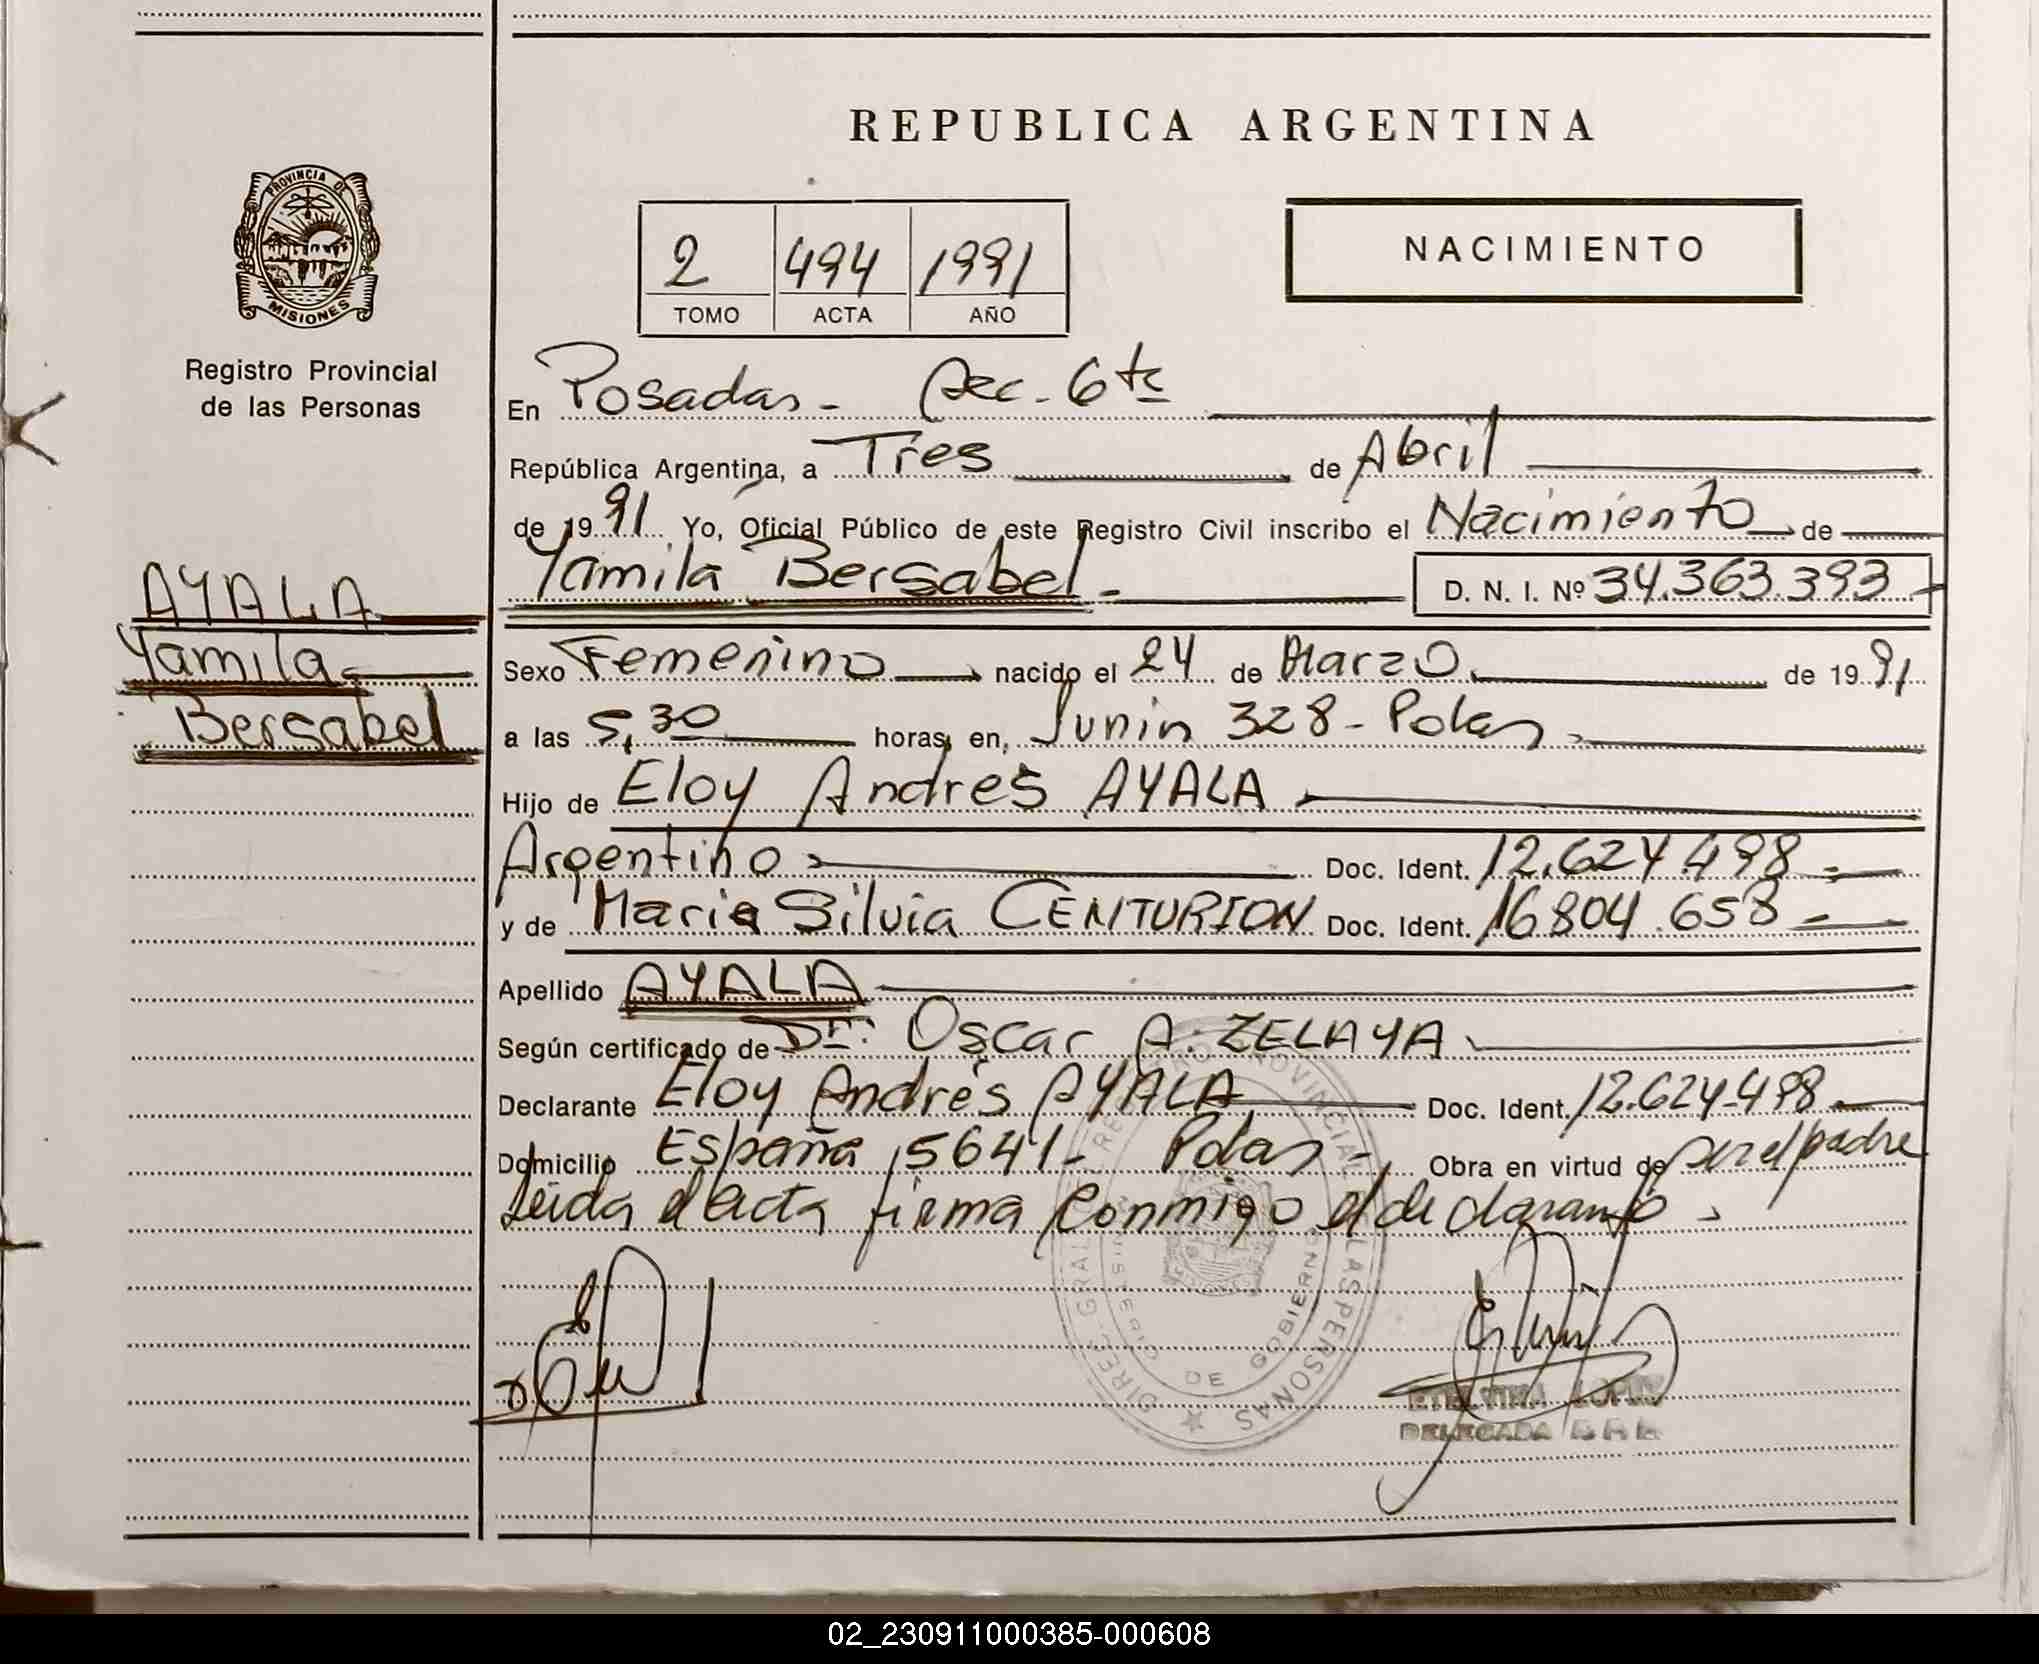 REPUBLICA ARGENTINA
PROVINCIA DE
MISIONES
Registro Provincial
de las Personas
2 494 1991
TOMO ACTA AÑO
NACIMIENTO
En Posadas - Sec. 6ta
República Argentina, a Tres de Abril
de 1991 Yo, Oficial Público de este Registro Civil inscribo el Nacimiento de
Yamila Bersabel - D. N. I. Nº 34.363.393
AYALA
Yamila
Bersabel
Sexo Femenino nacido el 24 de Marzo de 1991
a las 5,30 horas, en, Junin 328 - Pdas
Hijo de Eloy Andrés AYALA
Argentino Doc. Ident. 12.624.498
y de Maria Silvia CENTURION Doc. Ident. 16804.658
Apellido AYALA
Según certificado de Dr: Oscar A. ZELAYA
Declarante Eloy Andrés AYALA Doc. Ident. 12.624.498
Domicilio España 5641 - Pdas - Obra en virtud de ser el padre
Leida el acta firma conmigo el declarante
DIREC. GRAL. REGISTRO PROVINCIAL DE LAS PERSONAS
MINISTERIO DE GOBIERNO
ETELVINA LOPEZ
DELEGADA
02_230911000385-000608